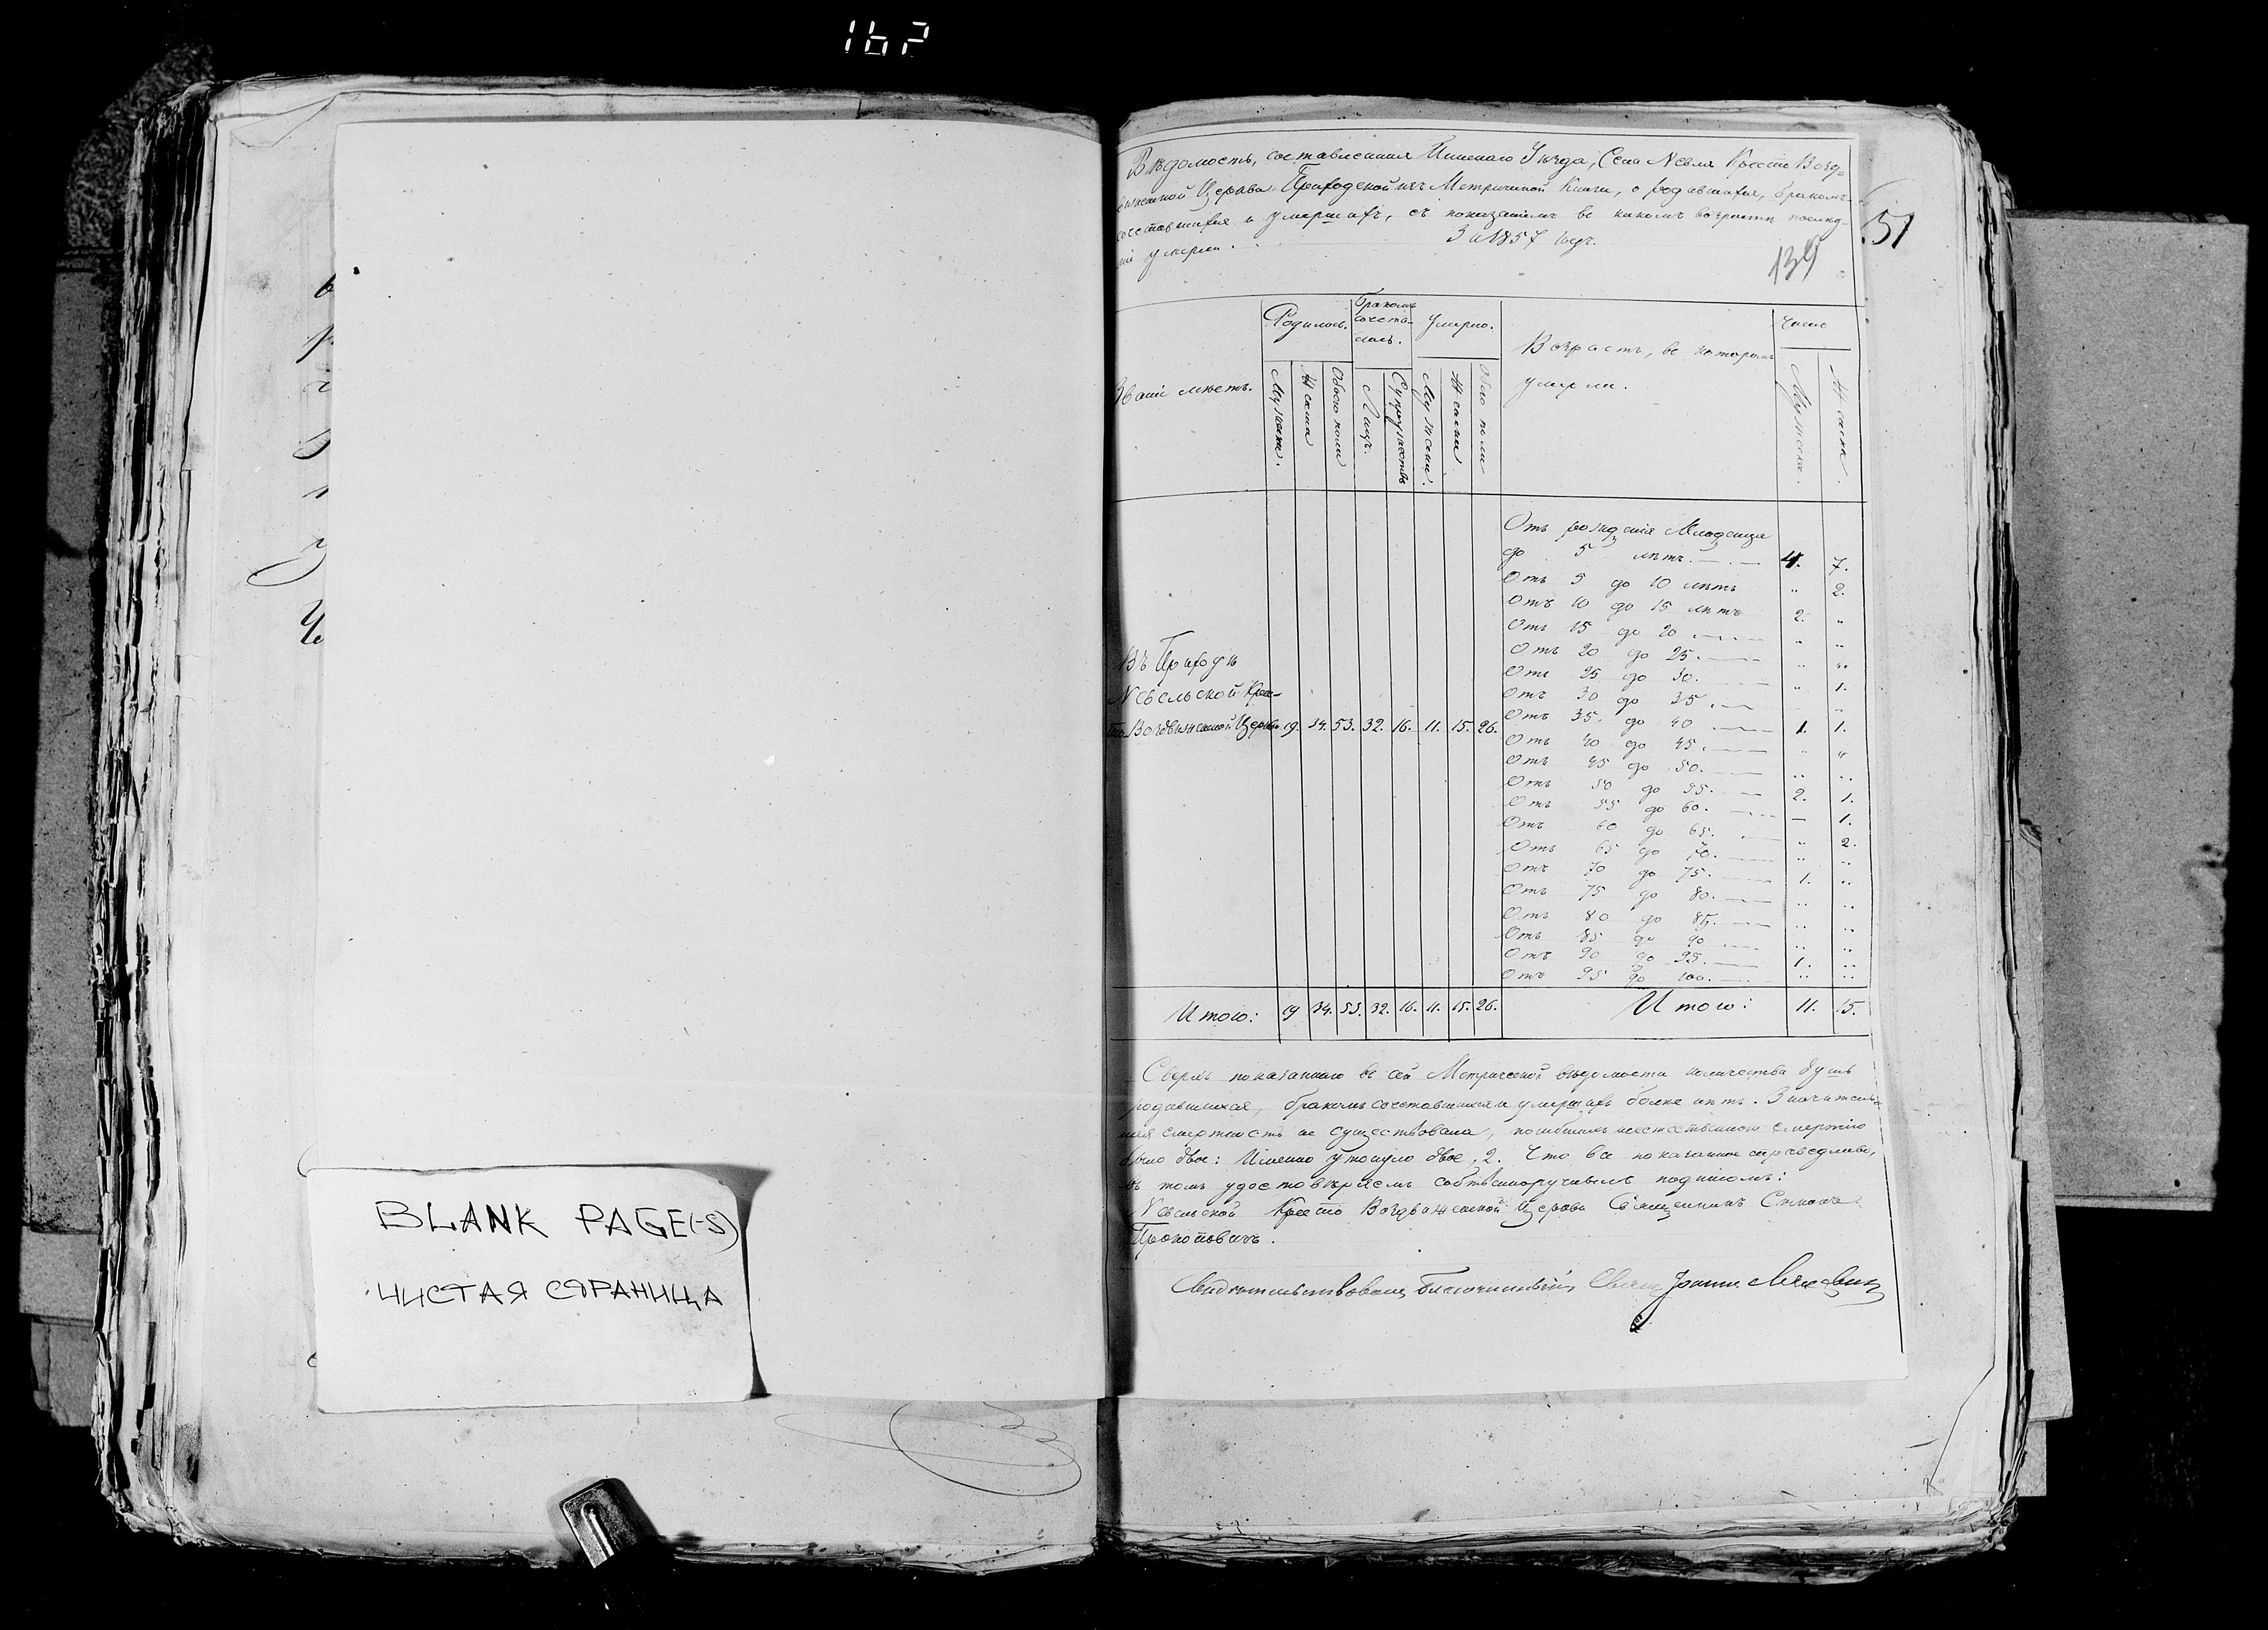 162
BLANK PAGE(-S)
ЧИСТАЯ СТРАНИЦА
Вѣдомость, составленная Пинскаго Уѣзда, Села Невля Кресто Возд=
виженской Церкви Приходской изъ Метричной Книги, о родившихся, бракомъ
сочетавшихся и умершихъ, съ показаніемъ въ какомъ возрастѣ послѣд-
ніе умерли.
За 1857 годъ.
51
139
Званіе мѣстъ.
Родилось.
Бракомъ
сочета-
лось.
Умерло.
Возрастъ, въ которомъ
умерли.
Число
Мужеска.
Женска
Обоего пола
Лицъ.
Супружествъ
Мужеска.
Женска.
Обоего пола
Мужеска.
Женска
Въ Приходѣ
Невельской Крес-
то-Воздвиженской Церкви 19. 34. 53. 32. 16. 11. 15. 26.
Отъ рожденія Младенца
до 5 лѣтъ. 4. 7.
Отъ 5 до 10 лѣтъ " 2.
Отъ 10 до 15 лѣтъ 2. "
Отъ 15 до 20 " "
Отъ 20 до 25. " "
Отъ 25 до 30. " 1.
Отъ 30 до 35.
Отъ 35. до 40 1. 1.
Отъ 40 до 45. " "
Отъ 45 до 50. " "
Отъ 50 до 55. 2. 1.
Отъ 55 до 60. — 1.
Отъ 60 до 65. " 2.
Отъ 65 до 70. " "
Отъ 70 до 75. 1. "
Отъ 75 до 80. " "
Отъ 80 до 85. " "
Отъ 85 до 90 " "
Отъ 90 до 95. 1. "
Отъ 95 до 100. " "
Итого: 19 34. 53. 32. 16. 11. 15. 26. Итого: 11. 15.
Сверхъ показаннаго въ сей Метрической вѣдомости количества душъ
родившихся, бракомъ сочетавшихся и умершихъ болѣе нѣтъ. Значитель-
ная смертность не существовала, погибшихъ неестественною смертію
было двое: Именно утонуло двое, 2. Что все показанное справедливо,
въ томъ удостовѣряемъ собственоручнымъ подписомъ:
Невельской Кресто Воздвиженской Церкви Священникъ
Прокоповичъ.
Свидѣтельствовалъ Благочинный Свящ Іоаннъ